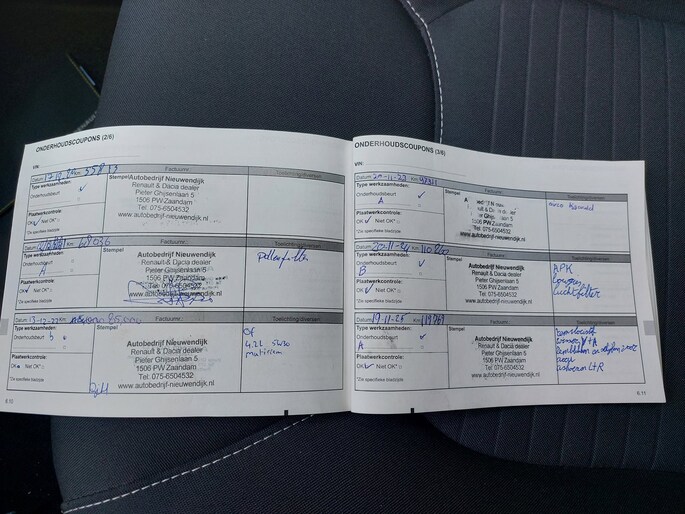 ONDERHOUDSCOUPONS (2/6)
VIN:
Datum: Km: 55813 Factuurnr.: Toelichting/diversen
Type werkzaamheden: Stempel
Onderhoudsbeurt ✓
Autobedrijf Nieuwendijk
Renault & Dacia dealer
Pieter Ghijsenlaan 5
1506 PW Zaandam
Tel: 075-6504532
www.autobedrijf-nieuwendijk.nl
Plaatwerkcontrole:
OK ✓ Niet OK*
*Zie specifieke bladzijde
Datum: Km: 68036 Factuurnr.: Toelichting/diversen
Type werkzaamheden: Stempel
Onderhoudsbeurt
A
Autobedrijf Nieuwendijk
Renault & Dacia dealer
Pieter Ghijsenlaan 5
1506 PW Zaandam
Tel: 075-6504532
www.autobedrijf-nieuwendijk.nl
Pollenfilter
Plaatwerkcontrole:
OK ✓ Niet OK*
*Zie specifieke bladzijde
Datum: 13-12-22 Km: 85.000 Factuurnr.: Toelichting/diversen
Type werkzaamheden: Stempel
Onderhoudsbeurt b
Autobedrijf Nieuwendijk
Renault & Dacia dealer
Pieter Ghijsenlaan 5
1506 PW Zaandam
Tel: 075-6504532
www.autobedrijf-nieuwendijk.nl
Of
4.2L 5w30
Plaatwerkcontrole:
OK Niet OK*
*Zie specifieke bladzijde
6.10
ONDERHOUDSCOUPONS (3/6)
VIN:
Datum: 20-11-23 Km: Factuurnr.: Toelichting/diversen
Type werkzaamheden: Stempel
Onderhoudsbeurt ✓
A
Renault & Dacia dealer
Pieter Ghijsenlaan 5
1506 PW Zaandam
Tel: 075-6504532
www.autobedrijf-nieuwendijk.nl
Plaatwerkcontrole:
OK ✓ Niet OK*
*Zie specifieke bladzijde
Datum: 20-11-24 Km: 110200 Factuurnr.: Toelichting/diversen
Type werkzaamheden: Stempel
Onderhoudsbeurt ✓
B
Autobedrijf Nieuwendijk
Renault & Dacia dealer
Pieter Ghijsenlaan 5
1506 PW Zaandam
Tel: 075-6504532
www.autobedrijf-nieuwendijk.nl
APK
Luchtfilter
Plaatwerkcontrole:
OK ✓ Niet OK*
*Zie specifieke bladzijde
Datum: 19-11-25 Km: 119769 Factuurnr.: Toelichting/diversen
Type werkzaamheden: Stempel
Onderhoudsbeurt ✓
A
Autobedrijf Nieuwendijk
Renault & Dacia dealer
Pieter Ghijsenlaan 5
1506 PW Zaandam
Tel: 075-6504532
www.autobedrijf-nieuwendijk.nl
Remvloeistof
V+A
L+R
Plaatwerkcontrole:
OK ✓ Niet OK*
*Zie specifieke bladzijde
6.11